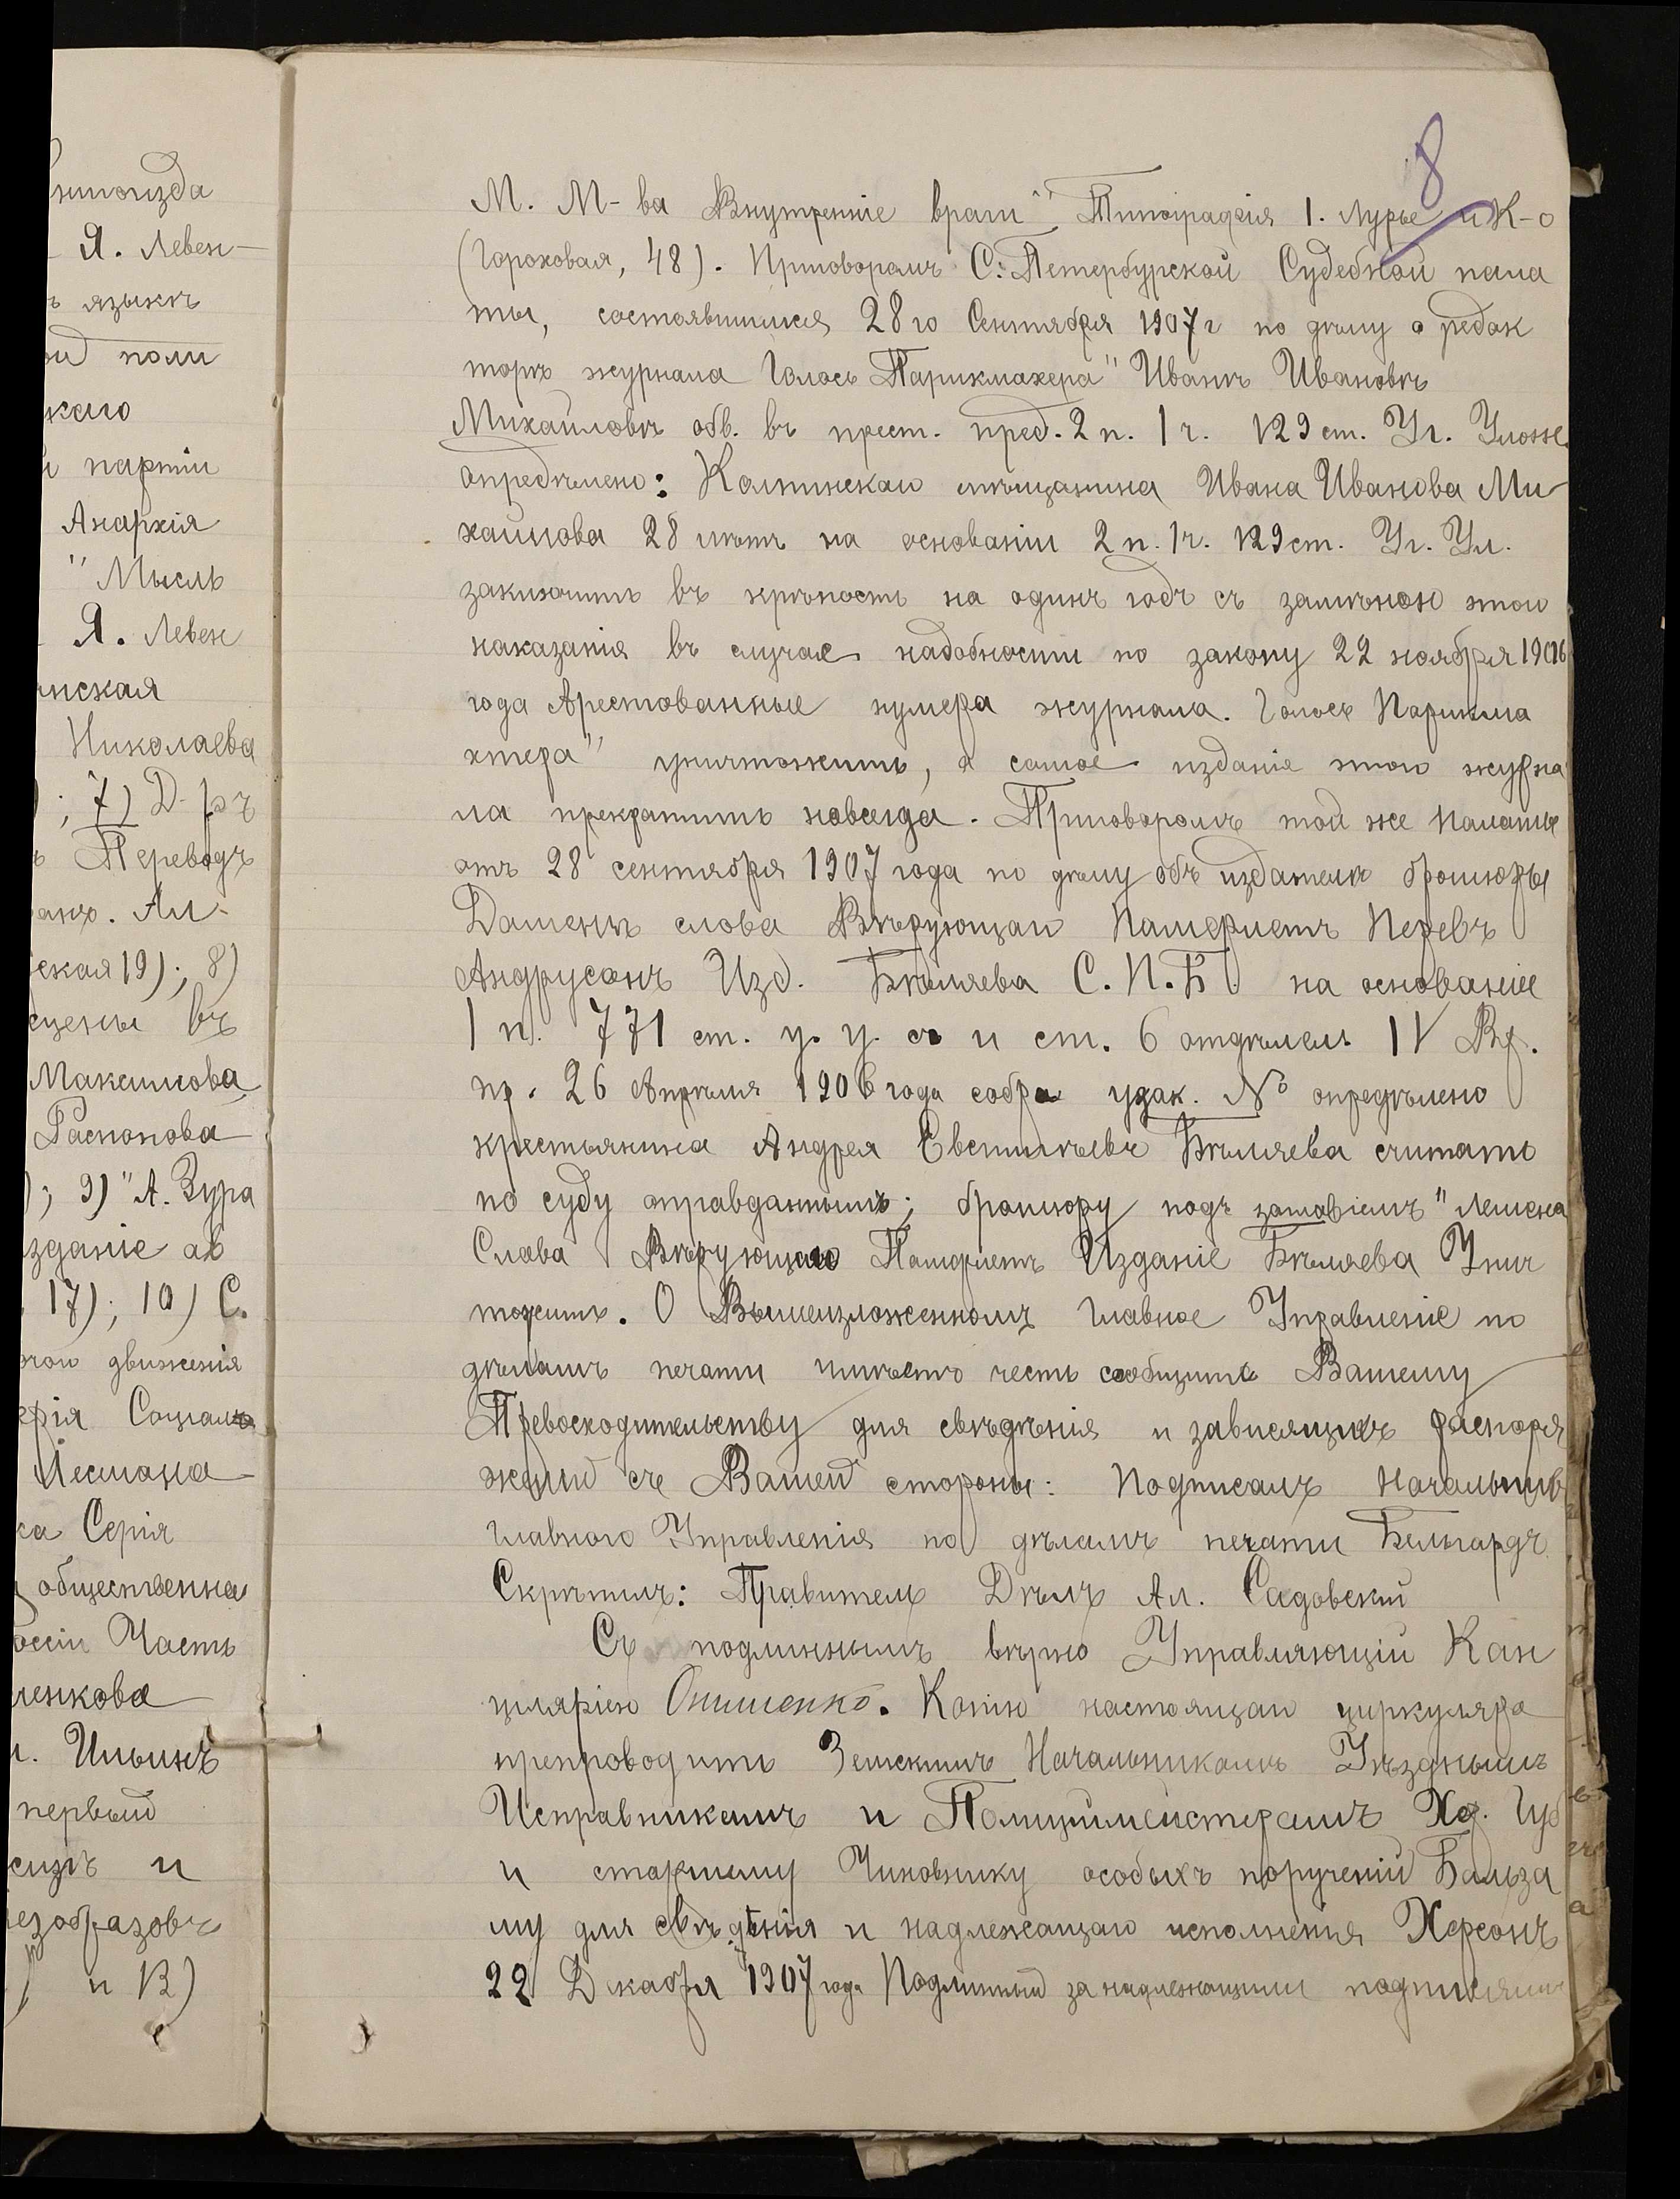 нигоизда
Я. Левен-
ъ языкъ
ой поли
скаго
й партіи
Анархія
" Мысль
Я. Левен
нская
Николаева
); 7) Д-ръ
ъ Переводъ
анх. Ал-
ская 19); 8)
сцены въ
Максимова
Распопова
); 9) "А. Зура
зданіе ав
17); 10) С.
этого движенія
ерія Соціаль
Лесмана
ка Серія
общественна
оссіи Часть
ленкова
и. Ильинъ
первый
сидъ и
езобразовъ
) и В)
8
М. М-ва Внутренніе враги" Типографія І. Лурье и К-о
(Гороховая, 48). Приговоромъ С.-Петербурской Судебной пала
ты, состоявшимся 28 го Сентября 1907 г по дѣлу о редак
торѣ журнала Голосъ Парикмахера" Иванѣ Ивановѣ
Михайловѣ обв. въ прест. пред. 2 п. 1 ч. 129 ст. Уг. Улож.
опредѣлено: Колпинскаго мѣщанина Ивана Иванова Ми-
хайлова 28 лѣтъ на основаніи 2 п. 1 ч. 129 ст. Уг. Ул.
заключить въ крѣпость на одинъ годъ съ замѣною этого
наказанія въ случаѣ надобности по закону 22 ноября 1906
года Арестованные нумера журнала. Голосъ Парикма
хтера" уничтожить, а самое изданіе этого журна
ла прекратить навсегда. Приговоромъ той же палаты
отъ 28 сентября 1907 года по дѣлу объ издателѣ брошюры
слова Вѣрующаго Памфлетъ Перевъ
Андрусонъ Изд. Бѣляева С.П.Б. на основаніе
1 п. 771 ст. у. у. с. и ст. 6 отдѣлел IV Вр.
пр. 26 Апрѣля 1906 года собра узак. № опредѣлено
крестьянина Андрея Бѣляева считать
по суду оправданнымъ; брошюру подъ заглавіемъ "
Слова Вѣрующаго Памфлетъ Изданіе Бѣляева Унич
тожить. О Вышеизложенномъ Главное Управленіе по
дѣламъ печати имѣетъ честь сообщить Вашему
Превосходительству для свѣдѣнія и зависящихъ распоря
женій съ Вашей стороны: Подписалъ Начальникъ
Главного Управленія по дѣламъ печати Бельгардъ
Скрѣпилъ: Правитель Дѣлъ Ал. Садовскій
Съ подлиннымъ вѣрно Управляющій Кан
целяріею Онищенко. Копію настоящаго циркуляра
препроводить Земскимъ Начальникамъ Уѣзднымъ
Исправникамъ и Полицмейстерамъ Хер. Губ
и старшему Чиновнику особыхъ порученій Бальза
му для свѣдѣнія и надлежащаго исполненія Херсонъ
22 Декабря 1907 года Подлинный за надлежащими подписями